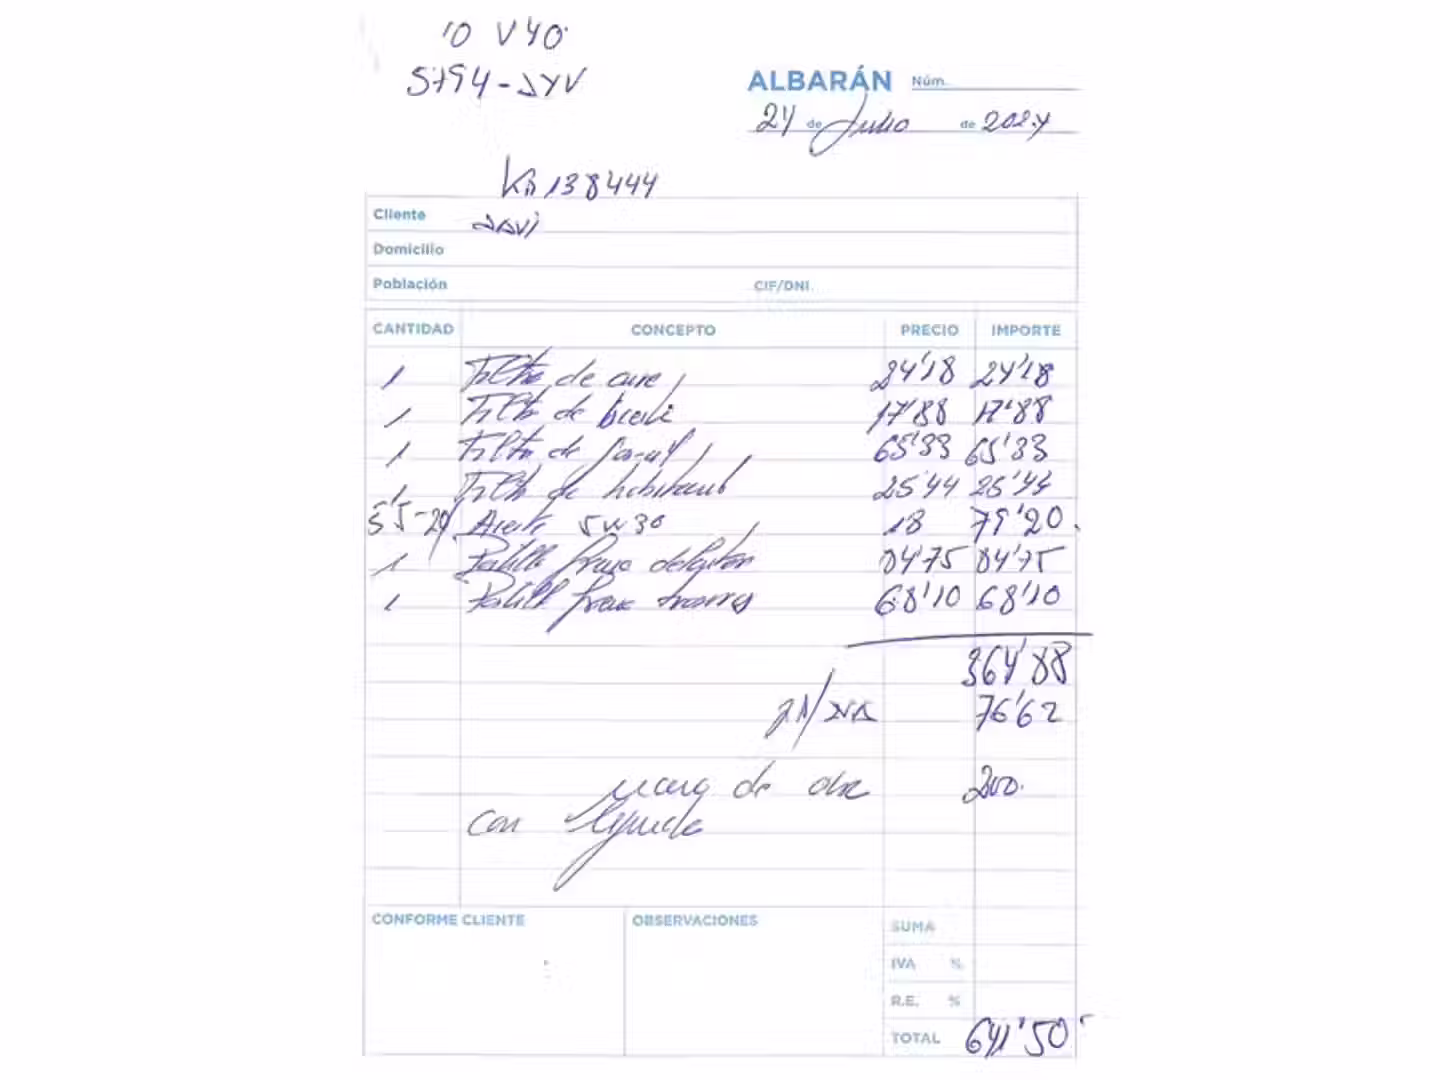 10 V40
5794-JYV
ALBARÁN Núm.
24 de Julio de 2024
Km 138444
Cliente Javi
Domicilio
Población CIF/DNI.
CANTIDAD CONCEPTO PRECIO IMPORTE
1 Filtro de aire 24'18 24'18
1 Filtro de aceite 17'88 17'88
1 Filtro de gas-oil 65'33 65'33
1 Filtro de habitaculo 25'44 25'44
5'5 Aceite 5W30 18 79'20
1 Pastilla freno delantera 84'75 84'75
1 Pastilla freno trasera 68'10 68'10
364'88
21/IVA 76'62
mano de obra 200.
con ayuda
CONFORME CLIENTE OBSERVACIONES SUMA
IVA %
R.E. %
TOTAL 641'50